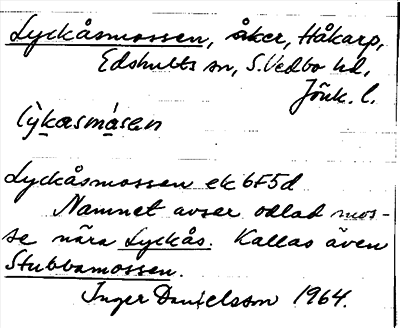 Lyckåsmossen, åker, Håkarp,
Edshults sn, S. Vedbo hd,
Jönk. l.
lỳkåsmåsen
Lyckåsmossen ek 6F5d
Namnet avser odlad mos-
se nära Lyckås. Kallas även
Stubbamossen.
Inger Danielsson 1964.